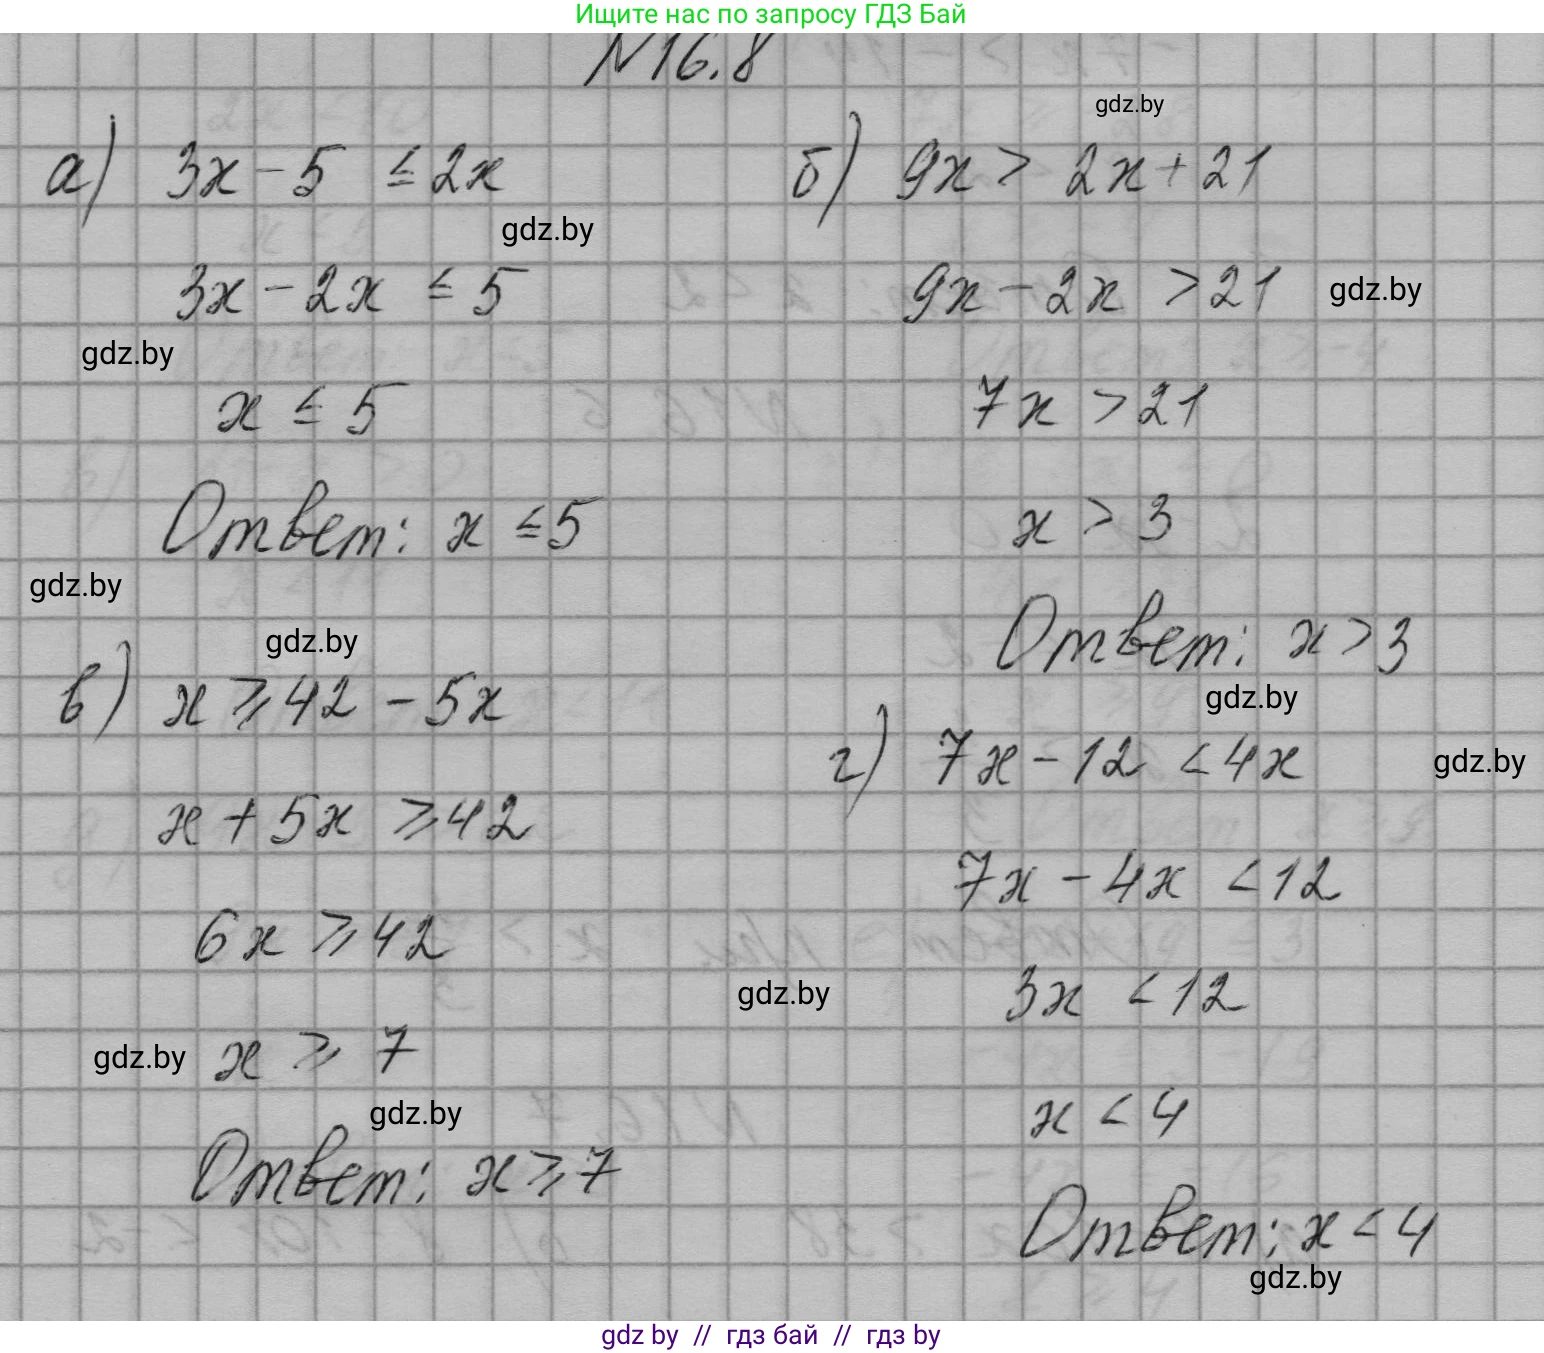 Ищите нас по запросу ГДЗ Бай
N16.8
gdz.by
а) 3x - 5 ≤ 2x
gdz.by
3x - 2x ≤ 5
gdz.by
x ≤ 5
Ответ: x ≤ 5
gdz.by
б) 9x > 2x + 21
9x - 2x > 21
gdz.by
7x > 21
x > 3
Ответ: x > 3
gdz.by
gdz.by
в) x ⩾ 42 - 5x
x + 5x ⩾ 42
6x ⩾ 42
gdz.by
x ⩾ 7
gdz.by
Ответ: x ⩾ 7
г) 7x - 12 < 4x
gdz.by
7x - 4x < 12
gdz.by
3x < 12
x < 4
Ответ: x < 4
gdz.by
gdz by // гдз бай // гдз by